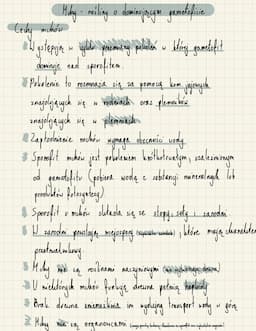 Mchy - rośliny o dominującym gametoficie
Cechy mchów
Występuje w cyklu przemiana pokoleń w której gametofit
dominuje nad sporofitem.
Pokolenie to rozmnaża się za pomocą kom. jajowych
znajdujących się w rodniach oraz plemników
znajdujących się w plemniach
Zapłodnienie mchów wymaga obecności wody.
Sporofit mchów jest pokoleniem krótkotrwałym, uzależnionym
od gametofitu (pobiera wodę z solami mineralnych lub
produktów fotosyntezy)
Sporofit u mchów składa się ze stopy, sety i zarodni
W zarodni powstają mejospory, które mają charakter
przetrwalnikowy
Mchy nie są roślinami naczyniowymi
U niektórych mchów funkcję drewna pełnią hydroidy
Brak drewna uniemożliwia im wydajny transport wody w górę
Mchy nie są organowcami